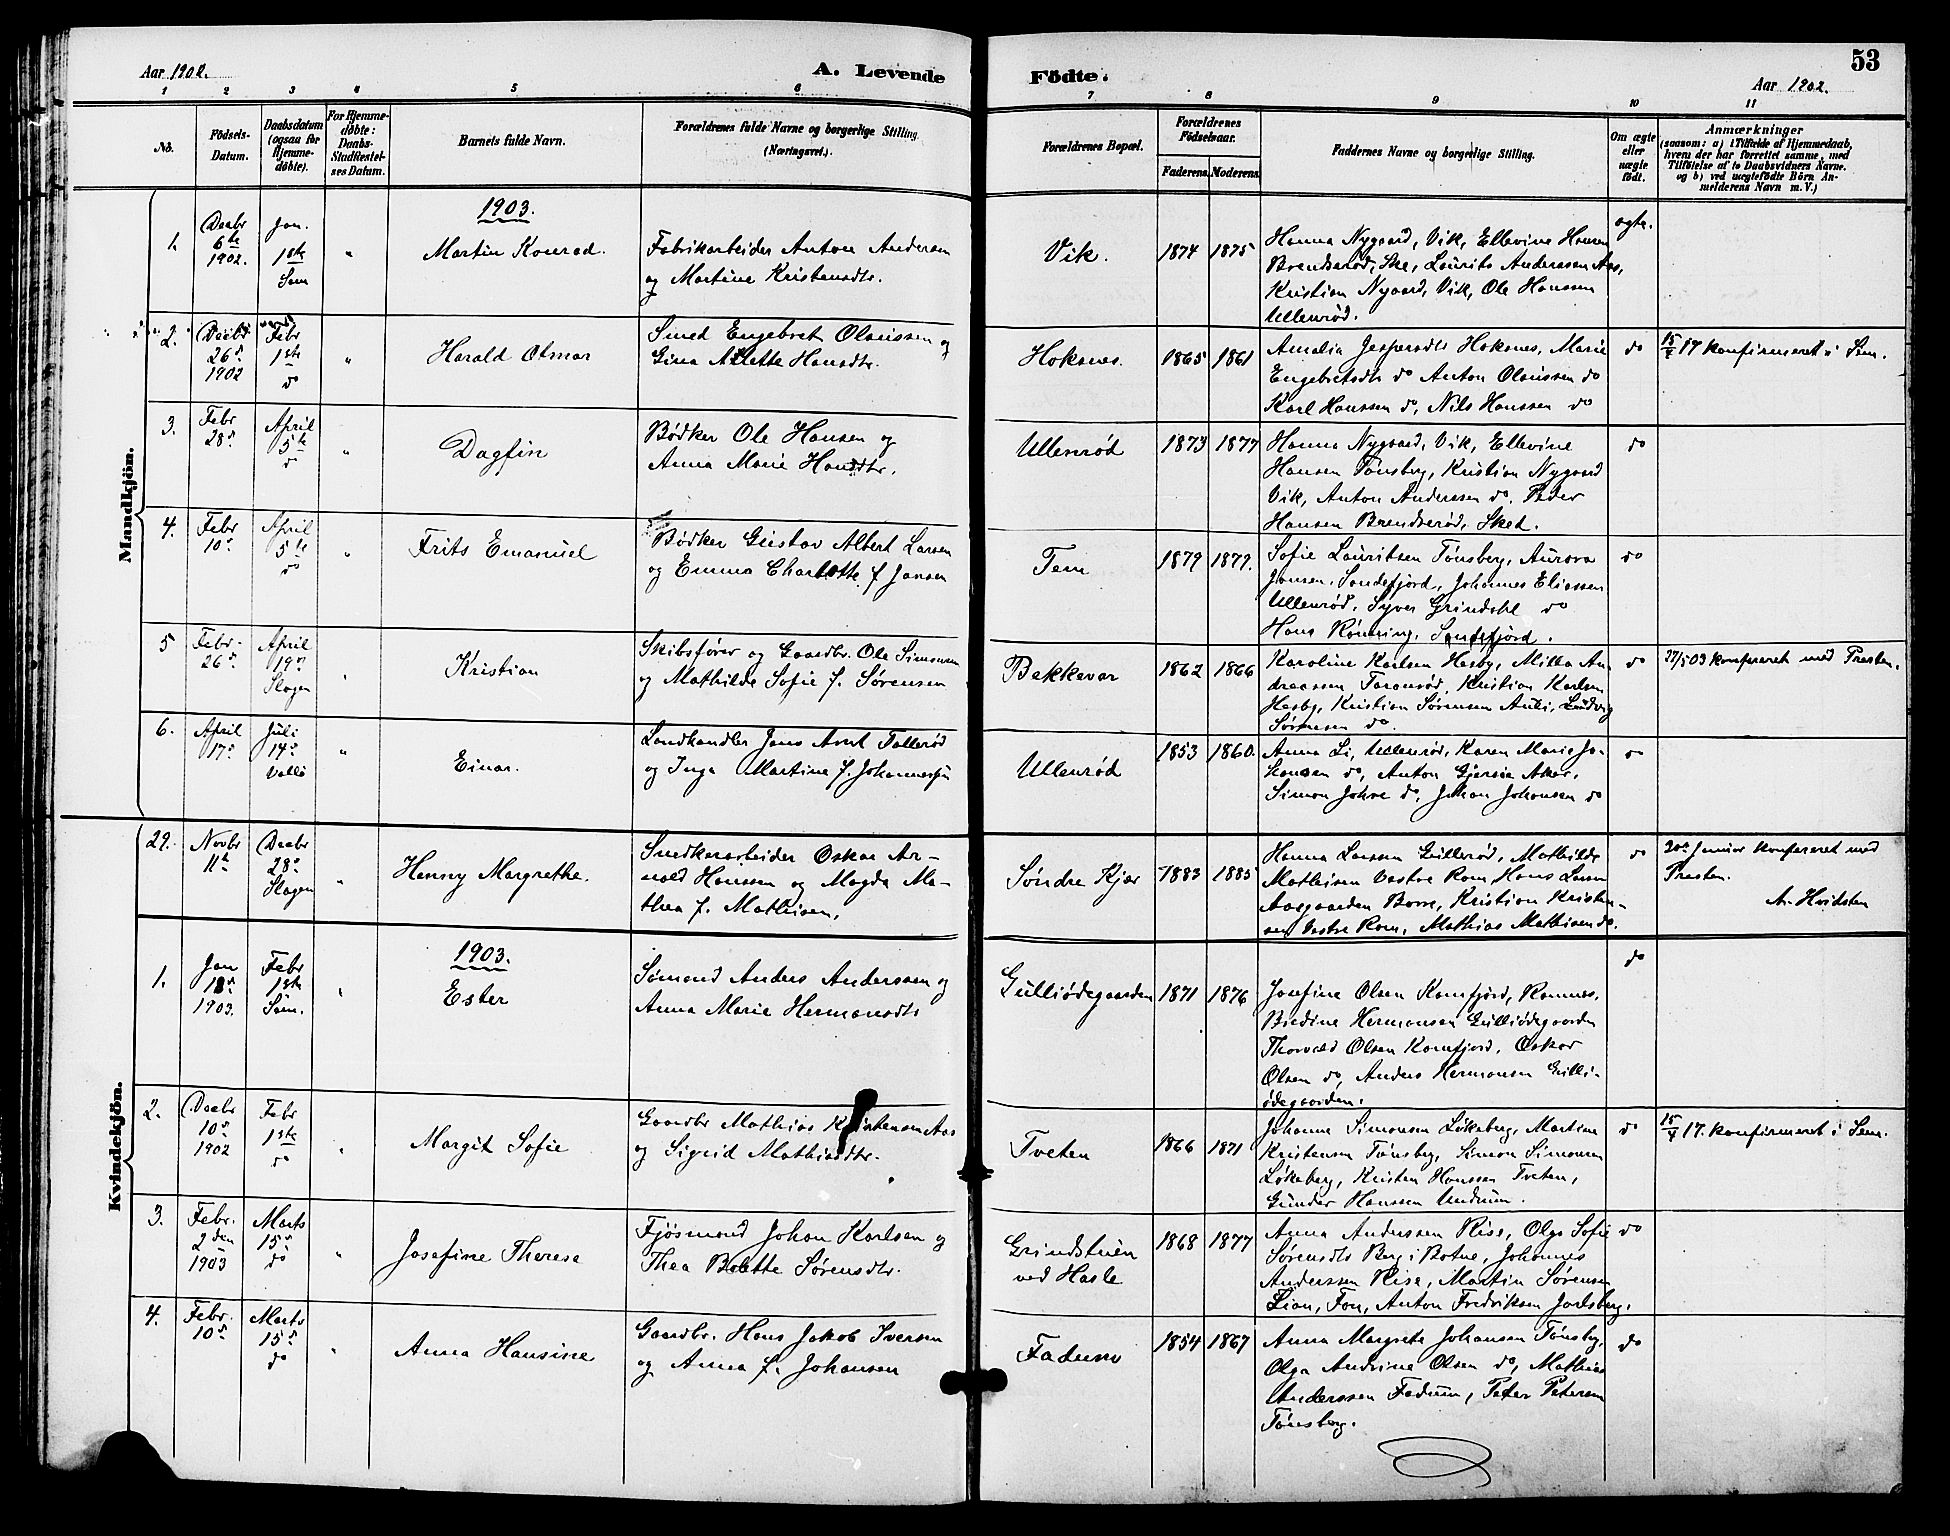 Aar 1902.
A. Levende
Fødte.
53
Aar 1902.
1 2 3 4 5 6 7 8 9 10 11
No.
Födsels-
Datum.
Daabsdatum
(ogsaa for
Hjemme-
døbte).
For Hjemme-
døbte:
Daabs-
Stadfæstel-
ses Datum.
Barnets fulde Navn.
Forældrenes fulde Navne og borgerlige Stilling
(Næringsvei.)
Forældrenes Bopæl.
Forældrenes
Födselsaar.
Faderens. Moderens.
Faddernes Navne og borgerlige Stilling.
Om ægte
eller
uægte
født.
Anmærkninger
(saasom: a) i Tilfælde af Hjemmedaab,
hvem der har forrettet samme, med
Tilføielse af to Daabsvidners Navne.
og b) ved uægtefödte Börn An-
melderens Navn m. V.)
Mandkjön.
1903.
1.
Decbr
6te
1902.
Jan.
1ste
Sem
"
Martin Konrad.
Fabrikarbeider Anton Andersen
og Martine Kristensdtr.
Vik.
1874 1875
Hanna Nygaard, Vik, Ellevine Hansen
Brendserød, Ske, Laurits Anderssen Aas,
Kristian Nygaard, Vik, Ole Hanssen
Ullenrød.
ægte.
2.
Decbr
26de
1902
Febr
1ste
do
"
Harald Otmar
Smed Engebret Olaussen og
Gina Alette Hansdtr.
Hoksnes.
1865 1861
Amalia Jespersdtr Hoksnes, Marie
Engebretsdtr do Anton Olaussen do
Karl Hanssen do, Nils Hanssen do
do
15/4 17 konfirmeret i Sem.
3.
Febr
28de
April
5te
do
"
Dagfin
Bødker Ole Hansen og
Anna Marie Hansdtr.
Ullenrød
1873 1877
Hanna Nygaard, Vik, Ellevine
Hansen Tønsberg, Kristian Nygaard
Vik, Anton Anderssen do. Peder
Hansen Brendserød, Sked.
do
4.
Febr
10de
April
5te
do
"
Frits Emanuel
Bødker Gustav Albert Larsen
og Emma Charlotte f. Jansen
Tem
1879 1879.
Sofie Lauritsen Tønsberg, Aurora
Jansen, Sandefjord, Johannes Eliassen
Ullenrød, Syver Grindahl do
Hans Rønning, Sandefjord.
do
5
Febr.
26de
April
19de
Slagen
"
Kristian
Skibsfører og Gaardbr. Ole Simonsen
og Mathilde Sofie f. Sørensen
Bekkevar
1862 1866
Karoline Karlsen Hesby, Milla An-
dreassen Taransrød, Kristian Karlsen
Hesby, Kristian Sørensen Auli, Ludvig
Sørensen do.
do
27/5 03 konfereret med Presten.
6.
April
17de
Juli
14de
Vallø
"
Einar.
Landhandler Jens Arnt Tallerød
og Inga Martine f. Johannessen
Ullenrød
1853 1860.
Anna Li, Ullenrød, Karen Marie Jo-
hansen do, Anton Gjersøe Aker,
Simon Jahre do, Johan Johansen do
do
Kvindekjön.
29.
Novbr
11te
Decbr
28de
Slagen
"
Henny Margrethe.
Snedkerarbeider Oskar Ar-
nold Hanssen og Magda Ma-
thea f. Mathisen.
Søndre Kjær
1883 1885
Hanna Larsen Gullerød, Mathilde
Mathisen Vestre Rom, Hans Larsen
Aasgaarden Borre, Kristian Kristen-
sen Vestre Rom, Mathias Mathisen do.
do
20de Januar konfereret med
Presten.
A. Hvidsten
1903.
1.
Jan
18de
1903.
Febr
1ste
Sem.
"
Ester
Sømand Anders Anderssen og
Anna Marie Hermansdtr
Gulliødegaarden
1871 1876
Josefine Olsen Kamfjord, Ramnes,
Bredine Hermansen Gulliødegaarden
Thorvald Olsen Kamfjord, Oskar
Olsen do, Anders Hermansen Gulli-
ødegaarden.
do
2.
Decbr
10de
1902
Febr
1ste
do
"
Margit Sofie
Gaardbr Mathias Kristensen Aas
og Sigrid Mathisdtr.
Tveten
1866 1871
Johanne Simonsen Løkeberg, Martine
Kristensen Tønsberg, Simon Simonsen
Løkeberg, Kristen Hanssen Tveten,
Gunder Hanssen Undrum.
do
15/4 17. konfirmeret i Sem.
3.
Febr.
2den
1903
Marts
15de
do
"
Josefine Therese
Fjøsmand Johan Karlsen og
Thea Bolette Sørensdtr.
Grindstuen
ved Hasle
1868 1877
Anna Anderssen Rise, Olga Sofie
Sørensdtr Berg i Botne, Johannes
Anderssen Rise, Martin Sørensen
Lian, Fon, Anton Fredriksen Jarlsberg.
do
4.
Febr.
10de
Marts
15de
do
"
Anna Hansine
Gaardbr. Hans Jakob Iversen
og Anna f. Johansen
Fadum
1854 1867
Anna Margrete Johansen Tønsbg,
Olga Andrine Olsen do, Mathias
Anderssen Fadum, Peter Petersen
Tønsberg.
do